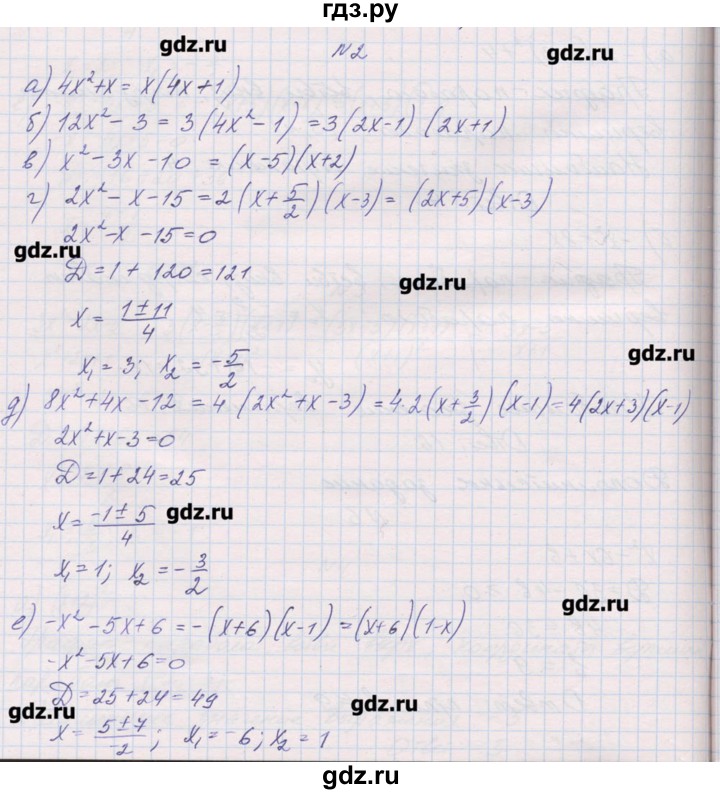 гдз.ру
gdz.ru gdz.ru
N2
а) 4x²+x = x(4x+1)
б) 12x² - 3 = 3(4x² - 1) = 3(2x-1)(2x+1)
в) x² - 3x - 10 = (x-5)(x+2)
г) 2x² - x - 15 = 2(x + 5/2)(x-3) = (2x+5)(x-3)
2x² - x - 15 = 0
gdz.ru
Д = 1 + 120 = 121
gdz.ru
x = (1 ± 11)/4
gdz.ru
x₁ = 3; x₂ = -5/2
д) 8x² + 4x - 12 = 4(2x² + x - 3) = 4·2(x + 3/2)(x-1) = 4(2x+3)(x-1)
2x² + x - 3 = 0
Д = 1 + 24 = 25
x = (-1 ± 5)/4
gdz.ru
x₁ = 1; x₂ = -3/2
gdz.ru
е) -x² - 5x + 6 = -(x+6)(x-1) = (x+6)(1-x)
-x² - 5x + 6 = 0
Д = 25 + 24 = 49
gdz.ru gdz.ru
x = (5 ± 7)/-2; x₁ = -6; x₂ = 1
gdz.ru